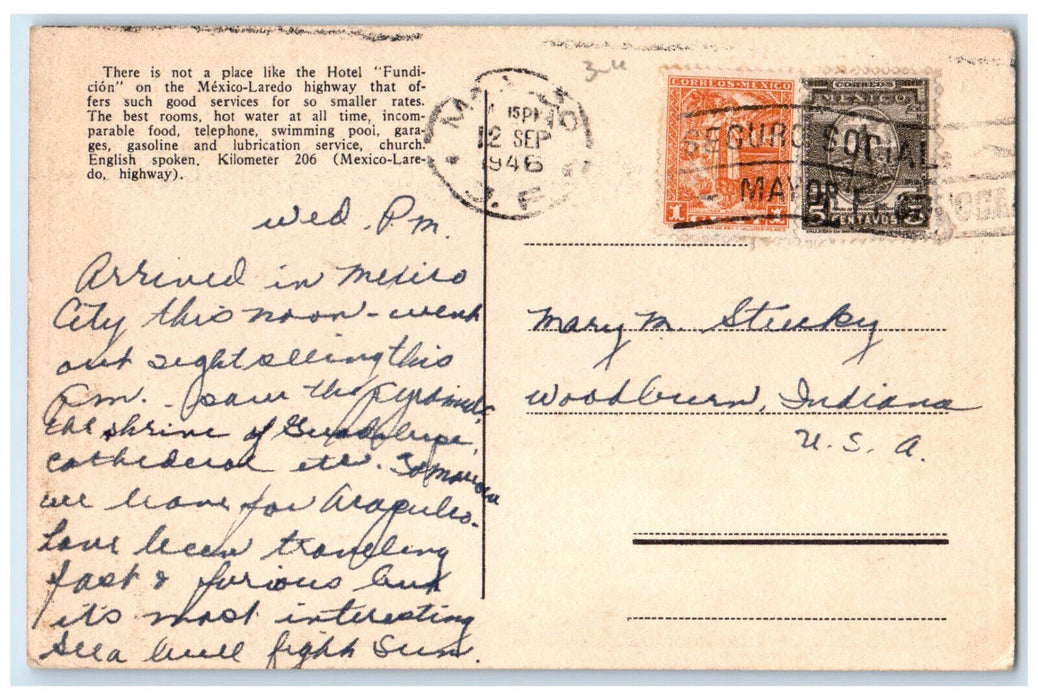 There is not a place like the Hotel "Fundi-
ción" on the México-Laredo highway that of-
fers such good services for so smaller rates.
The best rooms, hot water at all time, incom-
parable food, telephone, swimming pool, gara-
ges, gasoline and lubrication service, church.
English spoken. Kilometer 206 (Mexico-Lare-
do, highway).
15 PM
12 SEP
1946
CORREOS·MEXICO
1 1
MEXICO
5 CENTAVOS 5
SEGURO SOCIAL
MAYOR
Wed. P.M.
Arrived in Mexico
City this noon - went
out sightseeing this
P.m. - saw the Pyramids,
the shrine of Guadalupe,
cathederal etc. Tomorrow
we leave for Acapulco.
Have been traveling
fast & furious but
it's most interesting
See a bull fight Sun.
Mary M. Stucky
Woodburn, Indiana
U. S. A.